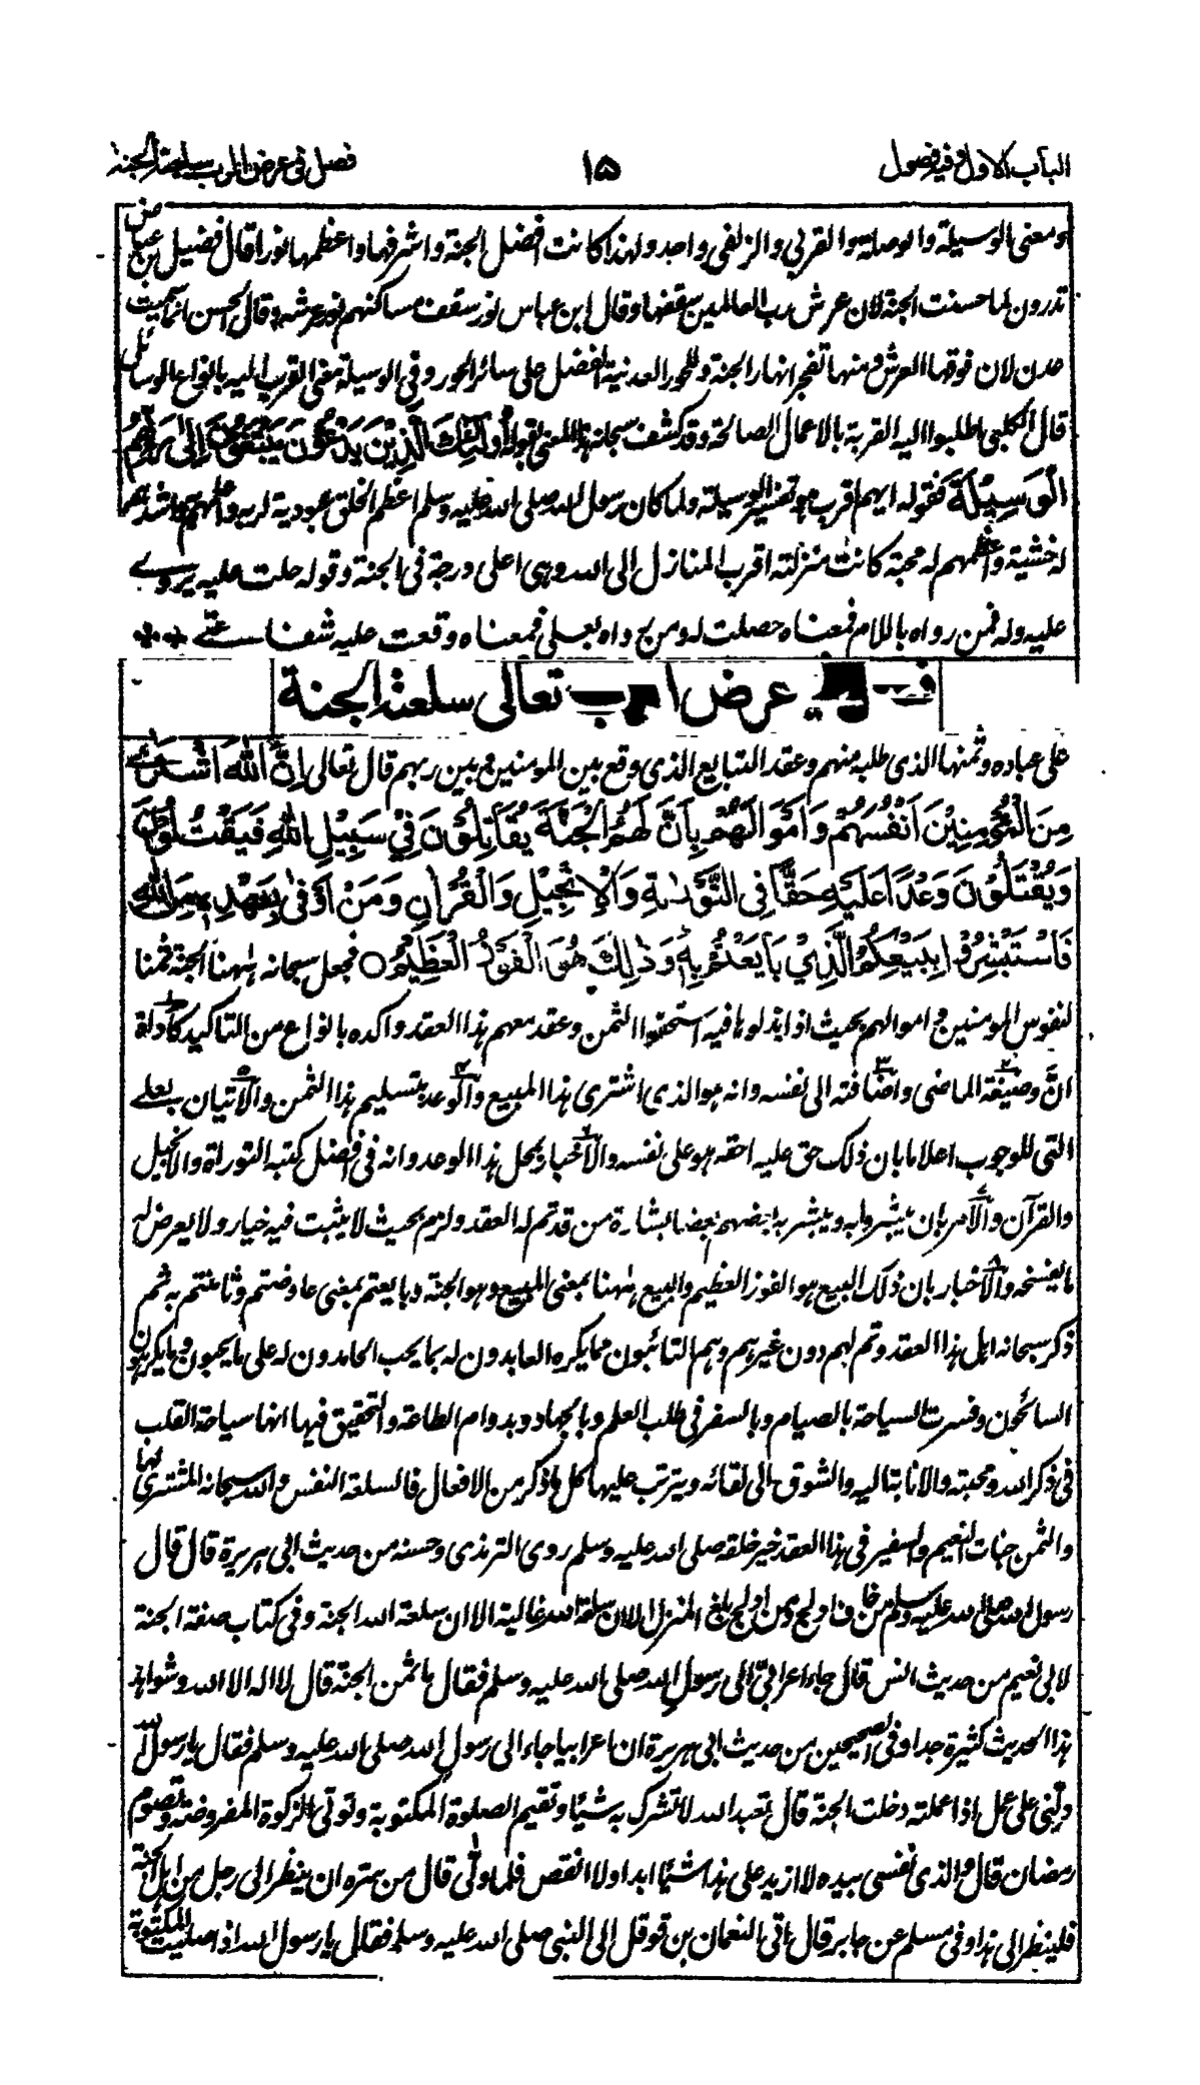 الباب الاول وفيه فصول
١٥
فصل فى عرض الرب سلعته الجنة
ومعنى الوسيلة والوصلة والقربى والزلفى واحد ولهذا كانت افضل الجنة واشرفها واعظمها نورا قال فضيل بن عياض
تدرون لما حسنت الجنة لان عرش رب العالمين سقفها وقال ابن عباس نور سقف مساكنهم نور عرشه وقال الحسن انما سميت
عدن لان فوقها العرش ومنها تفجر انهار الجنة وللحور العدنية الفضل على سائر الحور وفى الوسيلة معنى القرب اليه بانواع الوسائل
قال الكلبى اطلبوا اليه القربة بالاعمال الصالحة وقد كشف سبحانه هذا المعنى بقوله أُولَٰئِكَ الَّذِيْنَ يَدْعُوْنَ يَبْتَغُوْنَ إِلَىٰ رَبِّهِمُ
الْوَسِيْلَةَ فقوله ايهم اقرب هو تفسير الوسيلة ولما كان رسول الله صلى الله عليه وسلم اعظم الخلق عبودية لربه واعلمهم به واشدهم
له خشية واعظمهم له محبة كانت منزلته اقرب المنازل الى الله وهى اعلى درجة فى الجنة وقوله حلت عليه يروى
عليه وله فمن رواه باللام فمعناه حصلت له ومن رواه بعلى فمعناه وقعت عليه شفاعتى
فصل فى عرض الرب تعالى سلعته الجنة
على عباده وثمنها الذى طلبه منهم وعقد التبايع الذى وقع بين المومنين وبين ربهم قال تعالى إِنَّ اللهَ اشْتَرَىٰ
مِنَ الْمُؤْمِنِيْنَ اَنْفُسَهُمْ وَاَمْوَالَهُمْ بِاَنَّ لَهُمُ الْجَنَّةَ يُقَاتِلُوْنَ فِيْ سَبِيْلِ اللهِ فَيَقْتُلُوْنَ
وَيُقْتَلُوْنَ وَعْدًا عَلَيْهِ حَقًّا فِى التَّوْرٰىةِ وَالْاِنْجِيْلِ وَالْقُرْاٰنِ وَمَنْ اَوْفٰى بِعَهْدِهٖ مِنَ اللهِ
فَاسْتَبْشِرُوْا بِبَيْعِكُمُ الَّذِيْ بَايَعْتُمْ بِهٖ وَذٰلِكَ هُوَ الْفَوْزُ الْعَظِيْمُ○ فجعل سبحانه ههنا الجنة ثمنا
لنفوس المومنين واموالهم بحيث اذا بذلوها فيه استحقوا الثمن وعقد معهم هذا العقد واكده بانواع من التاكيد كاداة
انّ وصيغة الماضى واضافته الى نفسه وانه هو الذى اشترى هذا المبيع والوعد بتسليم هذا الثمن والاتيان بعلى
التى للوجوب اعلاما بان ذلك حق عليه احقه هو على نفسه والاخبار بمحل هذا الوعد وانه فى افضل كتبه التوراة والانجيل
والقرآن والامر بان يبشروا به ويبشر به بعضهم بعضا بشارة من قد تم له العقد ولزم بحيث لا يثبت فيه خيار ولا يعرض له
ما يفسخه والاخبار بان ذلك البيع هو الفوز العظيم والبيع ههنا بمعنى المبيع وهو الجنة وبايعتم بمعنى عاوضتم وثامنتم به ثم
ذكر سبحانه اهل هذا العقد وتم لهم دون غيرهم وهم التائبون مما يكره العابدون له بما يحب الحامدون له على ما يحبون وما يكرهون
السائحون وفسرت السياحة بالصيام وبالسفر فى طلب العلم وبالجهاد وبدوام الطاعة والتحقيق فيها انها سياحة القلب
فى ذكر الله ومحبته والانابة اليه والشوق الى لقائه ويترتب عليها كل ما ذكر من الافعال فالسلعة النفس والله سبحانه المشترى لها
والثمن جنات النعيم والسفير فى هذا العقد خير خلقه صلى الله عليه وسلم روى الترمذى وحسنه من حديث ابى هريرة قال قال
رسول الله صلى الله عليه وسلم من خاف ادلج ومن ادلج بلغ المنزل الا ان سلعة الله غالية الا ان سلعة الله الجنة وفى كتاب صفة الجنة
لابى نعيم من حديث انس قال جاء اعرابىّ الى رسول الله صلى الله عليه وسلم فقال ما ثمن الجنة قال لا اله الا الله وشواهد
هذا الحديث كثيرة جدا وفى الصحيحين من حديث ابى هريرة ان اعرابيا جاء الى رسول الله صلى الله عليه وسلم فقال يا رسول الله
دلّنى على عمل اذا عملته دخلت الجنة قال تعبد الله لا تشرك به شيئا وتقيم الصلوة المكتوبة وتوتى الزكوة المفروضة وتصوم
رمضان قال والذى نفسى بيده لا ازيد على هذا شيئا ابدا ولا انقص فلما ولّى قال من سره ان ينظر الى رجل من اهل الجنة
فلينظر الى هذا وفى مسلم عن جابر قال اتى النعمان بن قوقل الى النبى صلى الله عليه وسلم فقال يا رسول الله اذا صليت المكتوبة